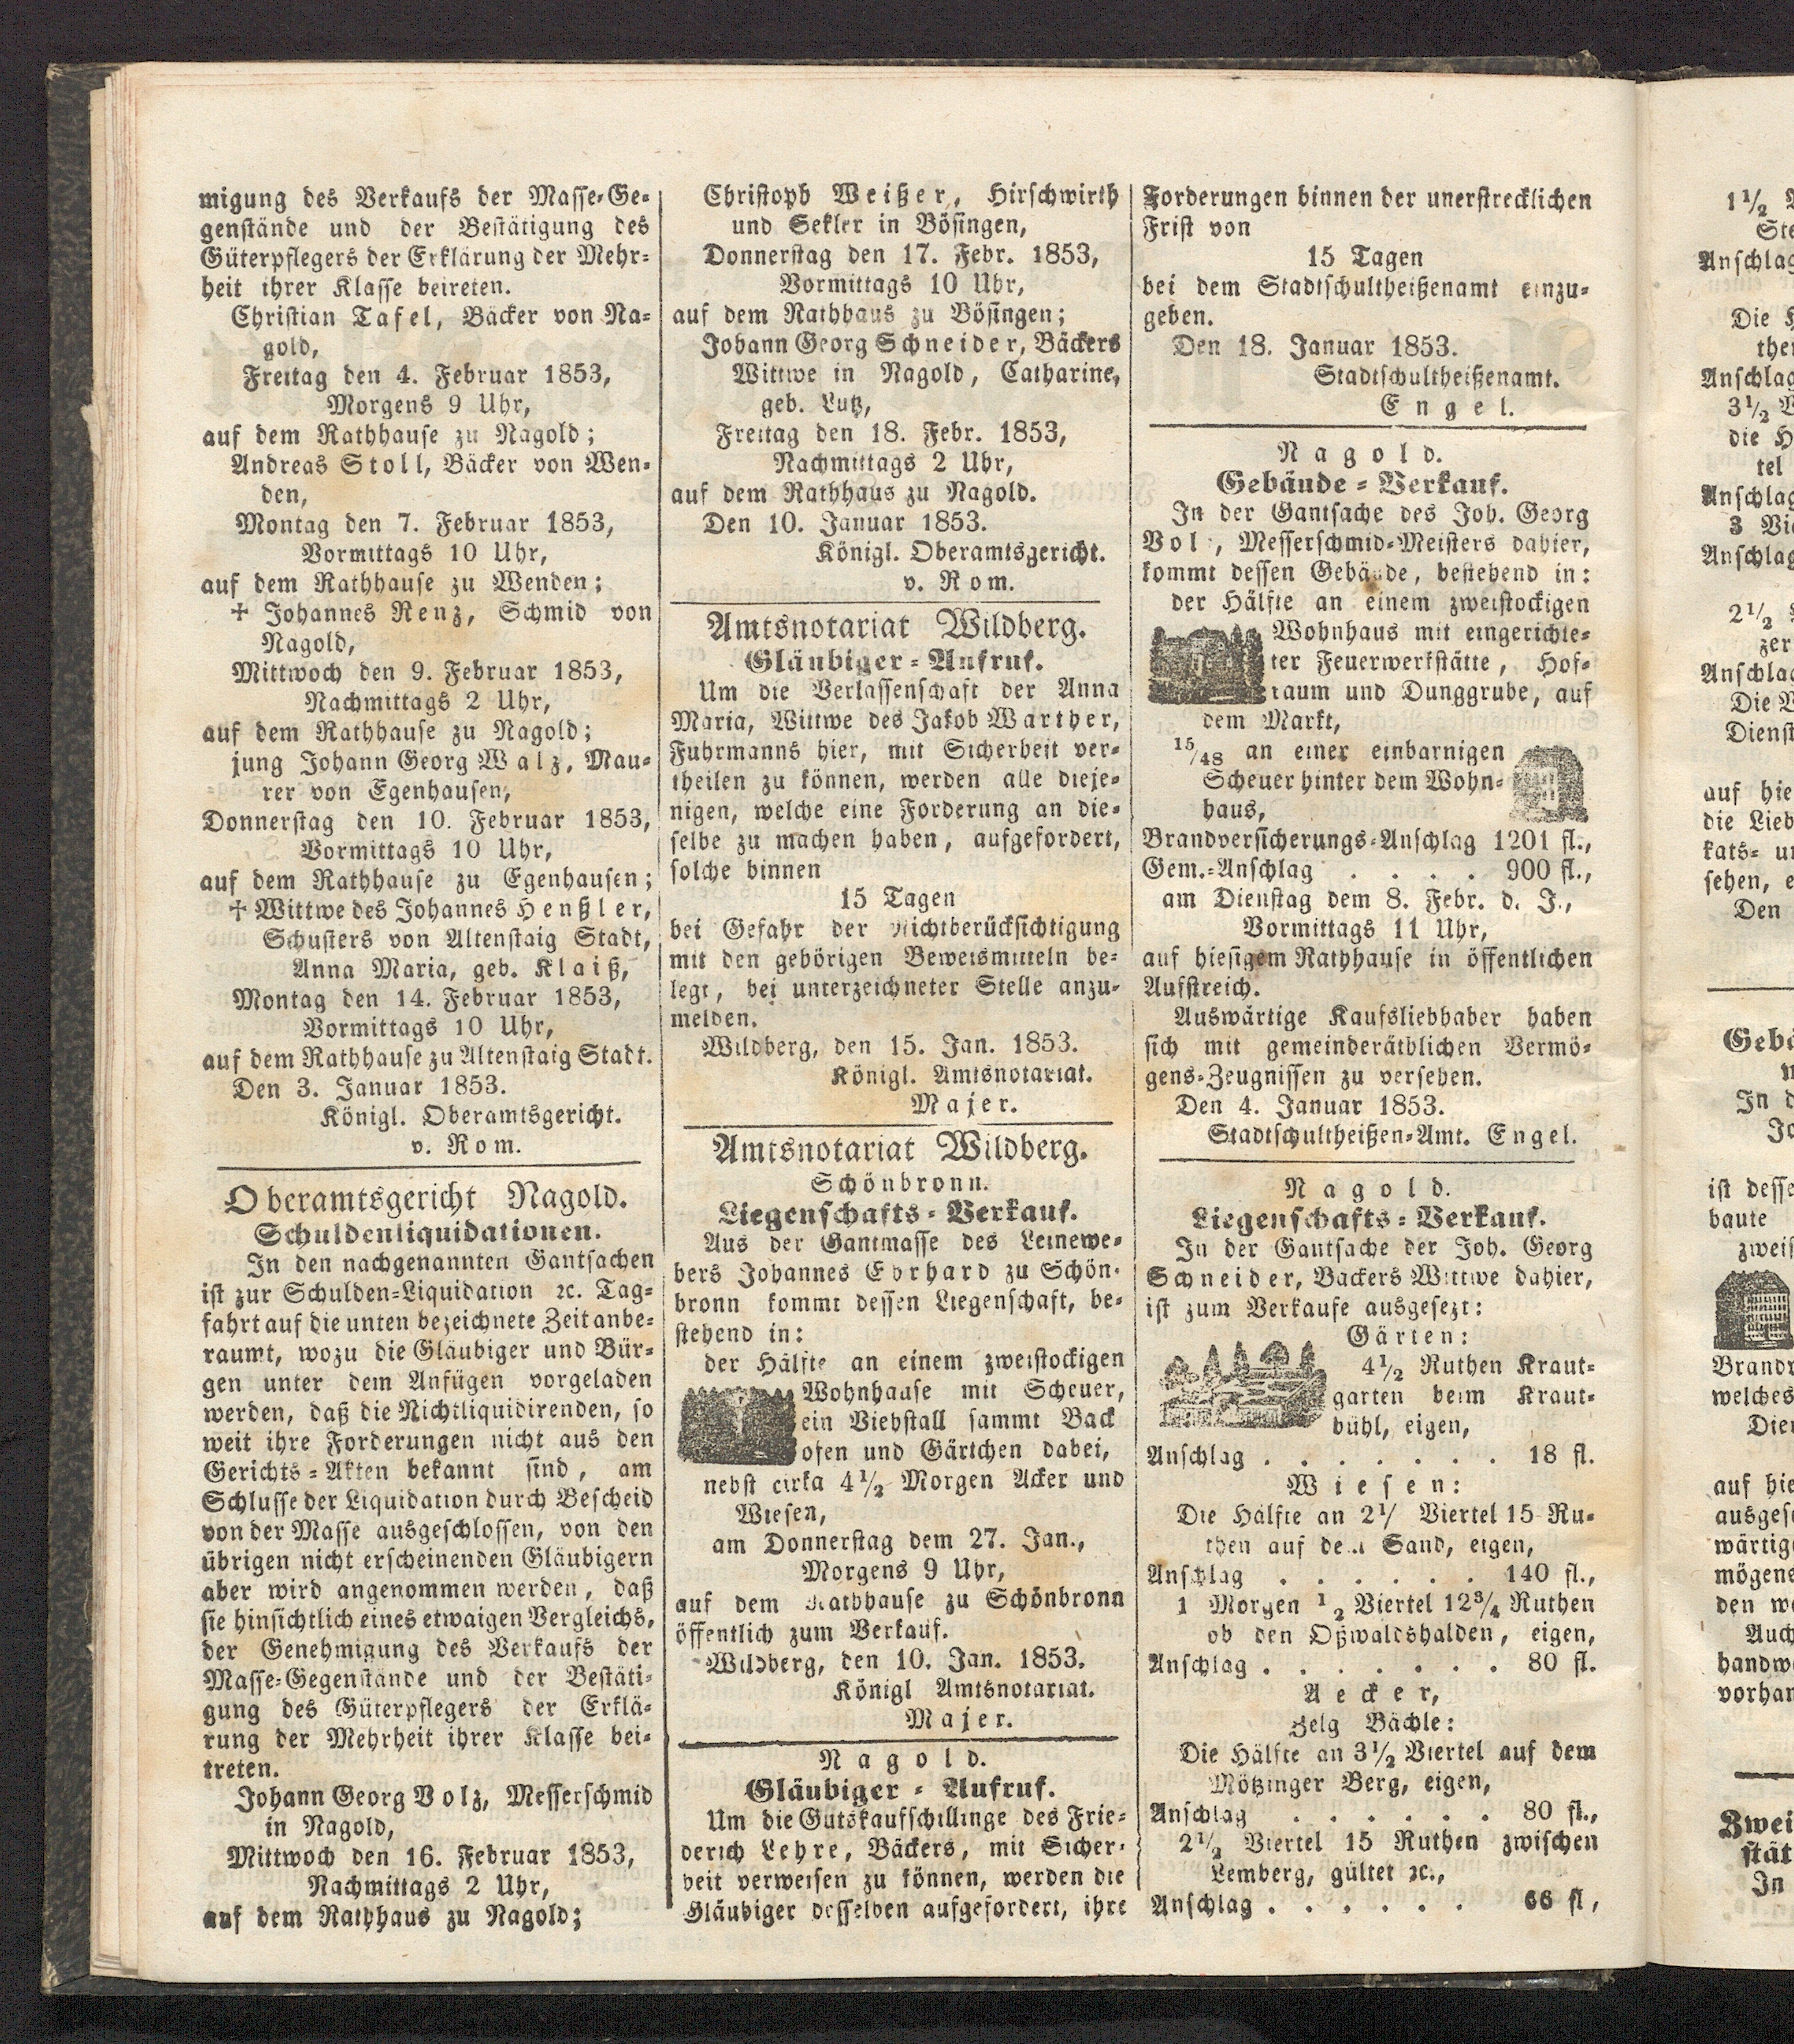 migung des Verkaufs der Masse-Ge-
genstände und der Bestätigung des
Güterpflegers der Erklärung der Mehr-
heit ihrer Klasse beireten.
Christian Tafel, Bäcker von Na-
gold,
Freitag den 4. Februar 1853,
Morgens 9 Uhr,
auf dem Rathhause zu Nagold;
Andreas Stoll, Bäcker von Wen-
den,
Montag den 7. Februar 1853,
Vormittags 10 Uhr,
auf dem Rathhause zu Wenden;
† Johannes Renz, Schmid von
Nagold,
Mittwoch den 9. Februar 1853,
Nachmittags 2 Uhr,
auf dem Rathhause zu Nagold;
jung Johann Georg Walz, Mau-
rer von Egenhausen,
Donnerstag den 10. Februar 1853,
Vormittags 10 Uhr,
auf dem Rathhause zu Egenhausen;
† Wittwe des Johannes Henßler,
Schusters von Altenstaig Stadt,
Anna Maria, geb. Klaiß,
Montag den 14. Februar 1853,
Vormittags 10 Uhr,
auf dem Rathhause zu Altenstaig Stadt.
Den 3. Januar 1853.
Königl. Oberamtsgericht.
v. Rom.
Oberamtsgericht Nagold.
Schuldenliquidationen.
In den nachgenannten Gantsachen
ist zur Schulden-Liquidation ꝛc. Tag-
fahrt auf die unten bezeichnete Zeit anbe-
raumt, wozu die Gläubiger und Bür-
gen unter dem Anfügen vorgeladen
werden, daß die Nichtliquidirenden, so
weit ihre Forderungen nicht aus den
Gerichts-Akten bekannt sind, am
Schlusse der Liquidation durch Bescheid
von der Masse ausgeschlossen, von den
übrigen nicht erscheinenden Gläubigern
aber wird angenommen werden, daß
sie hinsichtlich eines etwaigen Vergleichs,
der Genehmigung des Verkaufs der
Masse-Gegenstände und der Bestäti-
gung des Güterpflegers der Erklä-
rung der Mehrheit ihrer Klasse bei-
treten.
Johann Georg Volz, Messerschmid
in Nagold,
Mittwoch den 16. Februar 1853,
Nachmittags 2 Uhr,
auf dem Rathhaus zu Nagold;
Christoph Weißer, Hirschwirth
und Sekler in Bösingen,
Donnerstag den 17. Febr. 1853,
Vormittags 10 Uhr,
auf dem Rathhaus zu Bösingen;
Johann Georg Schneider, Bäckers
Wittwe in Nagold, Catharine,
geb. Lutz,
Freitag den 18. Febr. 1853,
Nachmittags 2 Uhr,
auf dem Rathhaus zu Nagold.
Den 10. Januar 1853.
Königl. Oberamtsgericht.
v. Rom.
Amtsnotariat Wildberg.
Gläubiger-Aufruf.
Um die Verlassenschaft der Anna
Maria, Wittwe des Jakob Warther,
Fuhrmanns hier, mit Sicherheit ver-
theilen zu können, werden alle dieje-
nigen, welche eine Forderung an die-
selbe zu machen haben, aufgefordert,
solche binnen
15 Tagen
bei Gefahr der Nichtberücksichtigung
mit den gehörigen Beweismitteln be-
legt, bei unterzeichneter Stelle anzu-
melden.
Wildberg, den 15. Jan. 1853.
Königl. Amtsnotariat.
Majer.
Amtsnotariat Wildberg.
Schönbronn.
Liegenschafts-Verkauf.
Aus der Gantmasse des Leinewe-
bers Johannes Ebrhard zu Schön-
bronn kommt dessen Liegenschaft, be-
stehend in:
der Hälfte an einem zweistockigen
Wohnhause mit Scheuer,
ein Viehstall sammt Back
ofen und Gärtchen dabei,
nebst cirka 4½ Morgen Acker und
Wiesen,
am Donnerstag dem 27. Jan.,
Morgens 9 Uhr,
auf dem Rathhause zu Schönbronn
öffentlich zum Verkauf.
Wildberg, den 10. Jan. 1853.
Königl Amtsnotariat.
Majer.
Nagold.
Gläubiger-Aufruf.
Um die Gutskaufschillinge des Frie-
derich Lehre, Bäckers, mit Sicher-
heit verweisen zu können, werden die
Gläubiger desselben aufgefordert, ihre
Forderungen binnen der unerstrecklichen
Frist von
15 Tagen
bei dem Stadtschultheißenamt einzu-
geben.
Den 18. Januar 1853.
Stadtschultheißenamt.
Engel.
Nagold.
Gebäude-Verkauf.
In der Gantsache des Joh. Georg
Vol, Messerschmid-Meisters dahier,
kommt dessen Gebäude, bestehend in:
der Hälfte an einem zweistockigen
Wohnhaus mit eingerichte-
ter Feuerwerkstätte, Hof-
raum und Dunggrube, auf
dem Markt,
15/48 an einer einbarnigen
Scheuer hinter dem Wohn-
haus,
Brandversicherungs-Anschlag 1201 fl.,
Gem.-Anschlag . . . . 900 fl.,
am Dienstag dem 8. Febr. d. J.,
Vormittags 11 Uhr,
auf hiesigem Rathhause in öffentlichen
Aufstreich.
Auswärtige Kaufsliebhaber haben
sich mit gemeinderäthlichen Vermö-
gens-Zeugnissen zu versehen.
Den 4. Januar 1853.
Stadtschultheißen-Amt. Engel.
Nagold.
Liegenschafts-Verkauf.
In der Gantsache der Joh. Georg
Schneider, Bäckers Wittwe dahier,
ist zum Verkaufe ausgesezt:
Gärten:
4½ Ruthen Kraut-
garten beim Kraut-
bühl, eigen,
Anschlag . . . . . . . 18 fl.
Wiesen:
Die Hälfte an 2½ Viertel 15 Ru-
then auf dem Sand, eigen,
Anschlag . . . . . . 140 fl.,
1 Morgen ½ Viertel 12¾ Ruthen
ob den Oßwaldshalden, eigen,
Anschlag . . . . . . . 80 fl.
Aecker,
Zelg Bächle:
Die Hälfte an 3½ Viertel auf dem
Mötzinger Berg, eigen,
Anschlag . . . . . . 80 fl.,
2½ Viertel 15 Ruthen zwischen
Lemberg, gültet ꝛc.,
Anschlag . . . . . . 66 fl,
1½
Anschlag
Die
Anschlag
3½
die
tel
Anschlag
3
Anschlag
2½
zer
Anschlag
Die
Dienst
auf hie
die Lieb
kats-
sehen,
Den
In
ist desse
baute
zweis
welches
auf hie
ausges
wärtig
mögens
den
Auch
handw
vorhan
Zwei
stät
In